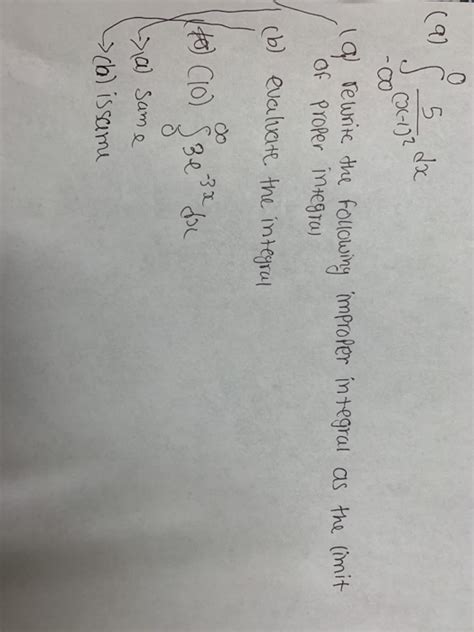 (9) ∫_{-∞}^{0} 5/(x-1)² dx
(a) rewrite the following improper integral as the limit
of proper integral
(b) evaluate the integral
(10) ∫_{0}^{∞} 3e^{-3x} dx
↳(a) same
↳(b) is same